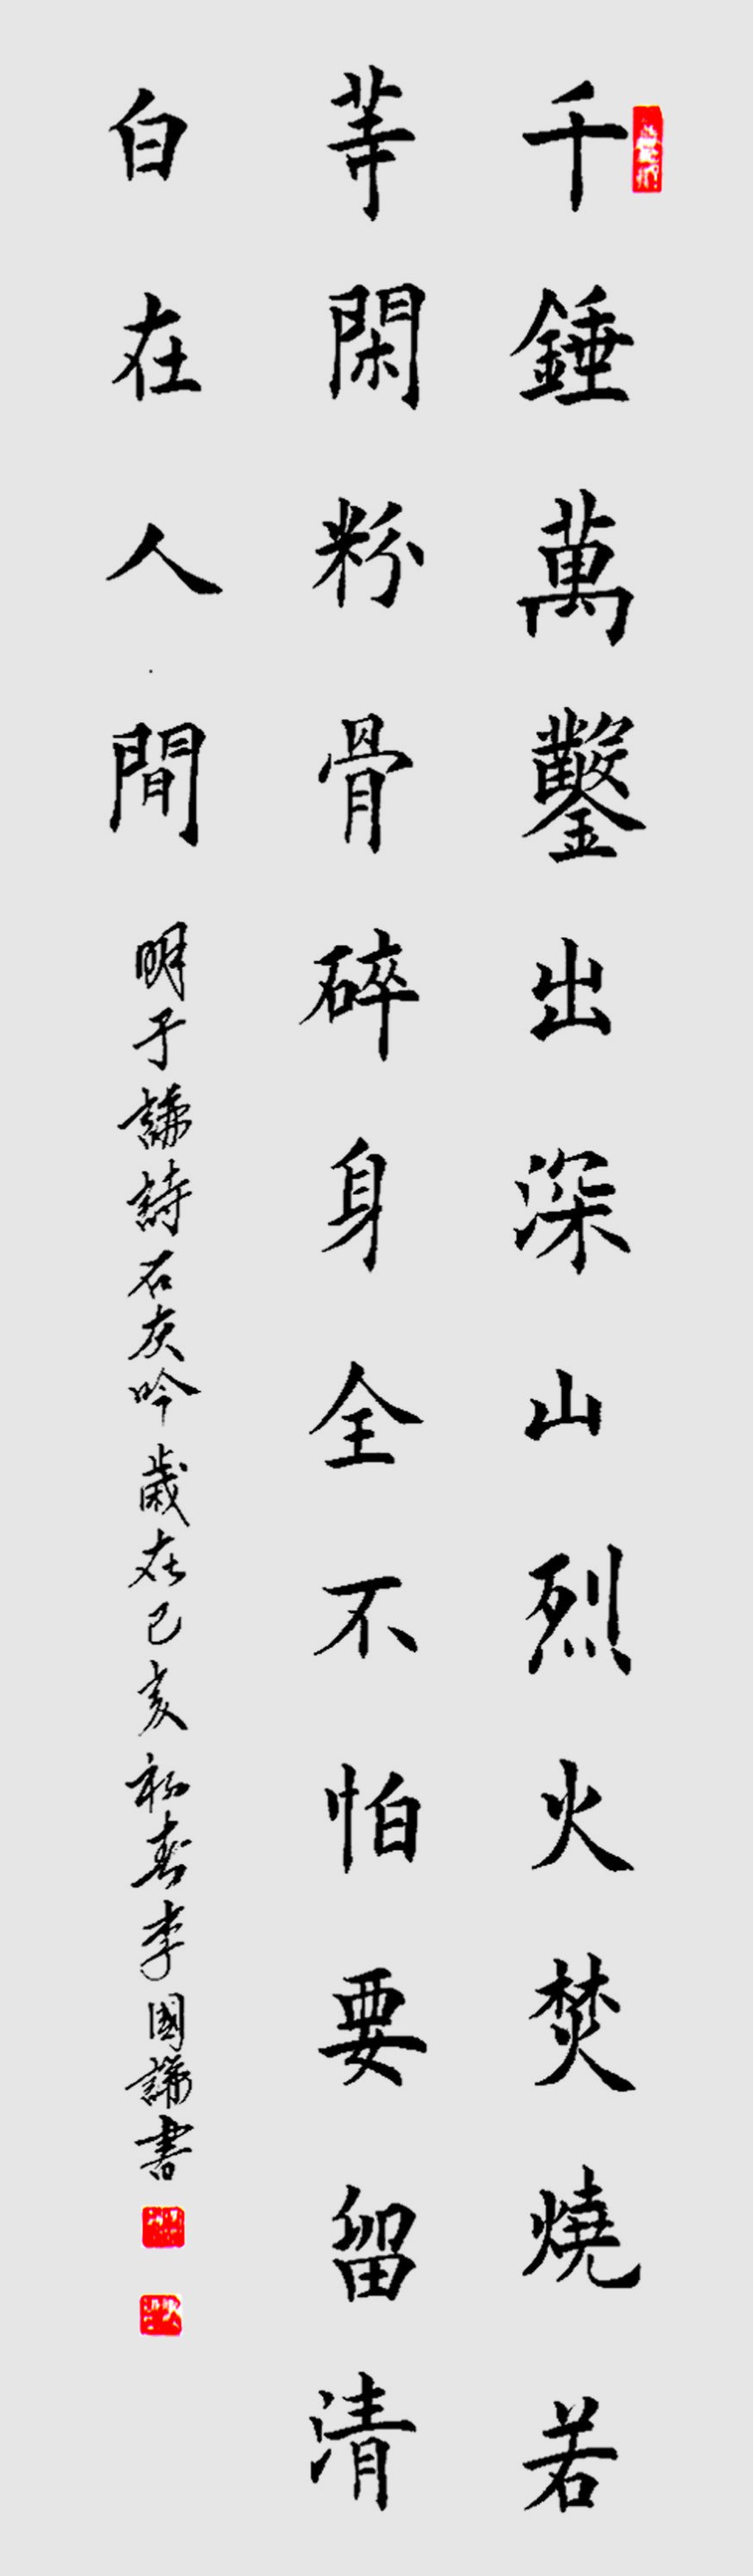 千錘萬鑿出深山烈火焚燒若
等閑粉骨碎身全不怕要留清
白在人間
明于謙詩石灰吟歲在己亥初春李國謙書